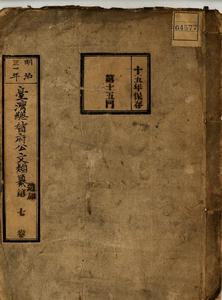 64577
十五年保存
第十五門
明治
三一年
臺灣總督府公文類纂
追加
第七卷